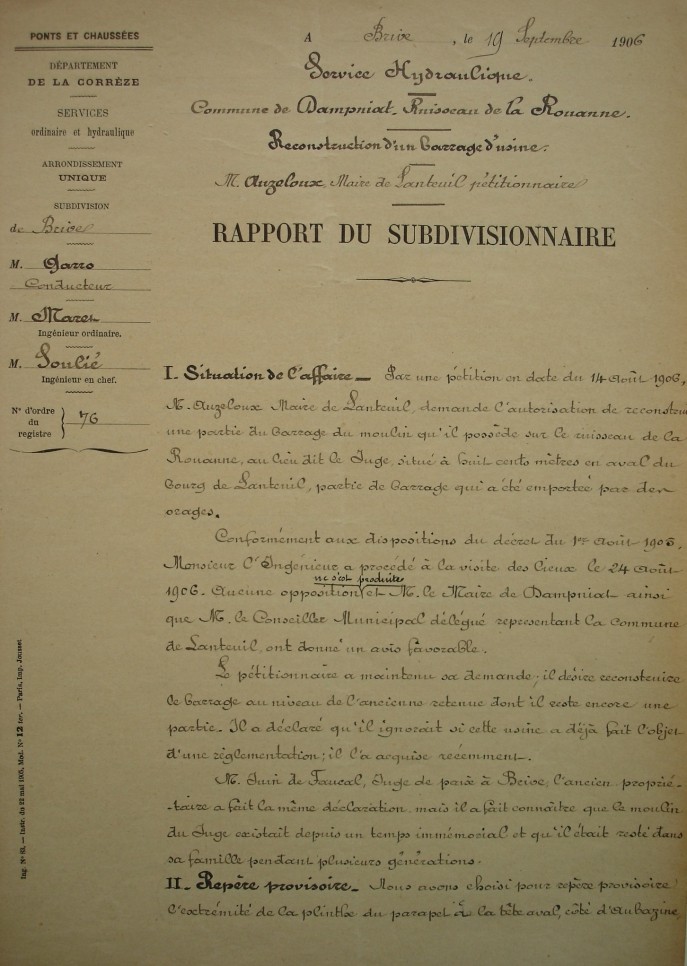 PONTS ET CHAUSSÉES
DÉPARTEMENT
DE LA CORRÈZE
SERVICES
ordinaire et hydraulique
ARRONDISSEMENT
UNIQUE
SUBDIVISION
de Brive
M. Garro
Conducteur
M. Maret
Ingénieur ordinaire.
M. Soulié
Ingénieur en chef.
N° d'ordre
du
registre
76
A Brive, le 19 Septembre 1906
Service Hydraulique.
Commune de Dampniat. Ruisseau de la Rouanne.
Reconstruction d'un barrage d'usine.
M. Auzeloux, Maire de Lanteuil pétitionnaire
RAPPORT DU SUBDIVISIONNAIRE
I. Situation de l'affaire — Par une pétition en date du 14 Août 1906,
M. Auzeloux Maire de Lanteuil, demande l'autorisation de reconstru
une partie du barrage du moulin qu'il possède sur le ruisseau de la
Rouanne, au lieu dit le Juge, situé à huit cents mètres en aval du
bourg de Lanteuil, partie de barrage qui a été emportée par des
orages.
Conformément aux dispositions du décret du 1er Août 1905,
Monsieur l'Ingénieur a procédé à la visite des lieux le 24 Août
ne s'est produite
1906. Aucune opposition et M. le Maire de Dampniat ainsi
que M. le Conseiller Municipal délégué représentant la Commune
de Lanteuil, ont donné un avis favorable.
Le pétitionnaire a maintenu sa demande; il désire reconstruire
le barrage au niveau de l'ancienne retenue dont il reste encore une
partie. Il a déclaré qu'il ignorait si cette usine a déjà fait l'objet
d'une règlementation; il l'a acquise récemment.
M. Juin de Faucal, Juge de paix à Brive, l'ancien proprié-
-taire a fait la même déclaration mais il a fait connaître que le moulin
du Juge existait depuis un temps immémorial et qu'il était resté dans
sa famille pendant plusieurs générations.
II. Repère provisoire — Nous avons choisi pour repère provisoire
l'extrémité de la plinthe du parapet à la tête aval, côté d'Aubazine,
Ing. N° 63. — Instr. du 22 mai 1905, Mod. N° 12 ter. — Paris, Imp. Jousset